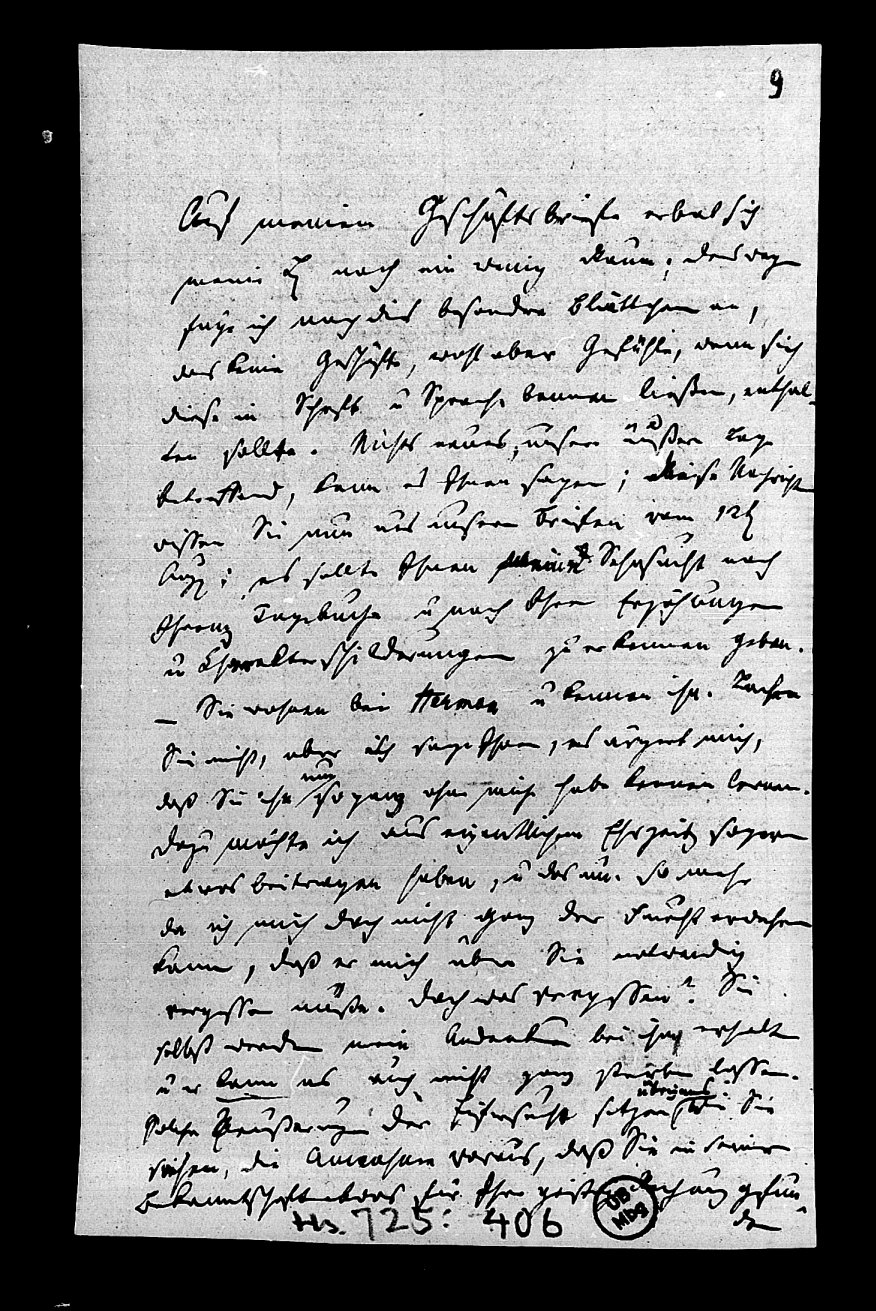 9
Auf meinem Geschäftsbriefe erbat sich
meine noch ein wenig Raum; deswegen
füge ich noch dies besondre Blättchen an,
das keine Geschäfte, wohl aber Gefühle, wenn sich
diese in Schrift u Sprache bannen ließen, enthal-
ten sollte. Nichts neues, unsere äußere Lage
betreffend, kann es Ihnen sagen; diese Nachrichten
wissen Sie nun aus unsern Briefen vom 12t
Aug; es sollte Ihnen meine Sehnsucht nach
Ihrem Tagebuche u nach Ihren Erzählungen
u Charakterschilderungen zu erkennen geben.
— Sie wohnen bei Herman u kennen ihn. Lachen
Sie nicht, aber ich sage Ihnen, es ärgert mich,
daß Sie ihn nun so ganz ohne mich habe kennen lernen.
Dazu möchte ich aus eigentlichem Ehrgeitz sagen
etwas beitragen haben, u das um so mehr
da ich mich doch nicht ganz der Furcht erwehren
kann, daß er mich über Sie notwendig
vergessen müße. Doch was vergessen? Sie
selbst werden mein Andenken bei ihm erhalten
u er kann es auch nicht ganz sterben lassen.
Solche Äußerungen der Eifersucht setzen übrigens wie Sie
sehen, die Annahme voraus, daß Sie in seiner
Bekanntschaft etwas für Ihre gefun-
den
Hs. 725: 406
UB
Mbg